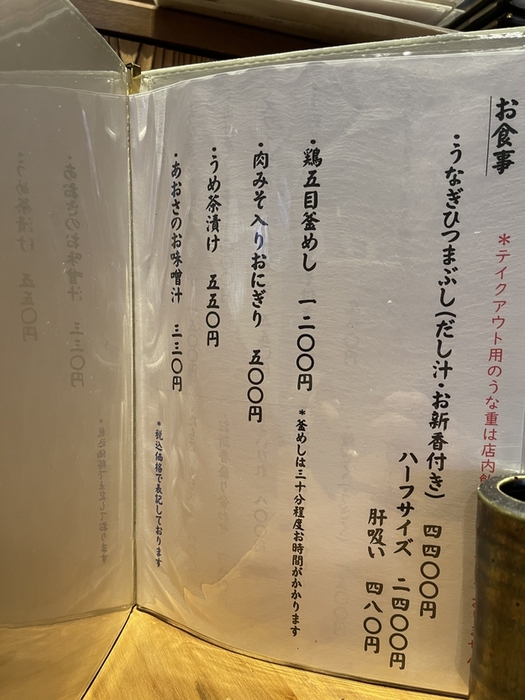 お食事
＊テイクアウト用のうな重は店内
・うなぎひつまぶし（だし汁・お新香付き） 四四〇〇円
ハーフサイズ 二四〇〇円
肝吸い 四八〇円
・鶏五目釜めし 一二〇〇円 ＊釜めしは三十分程度お時間がかかります
・肉みそ入りおにぎり 五〇〇円
・うめ茶漬け 五五〇円
・あおさのお味噌汁 三三〇円
＊税込価格で表記しております